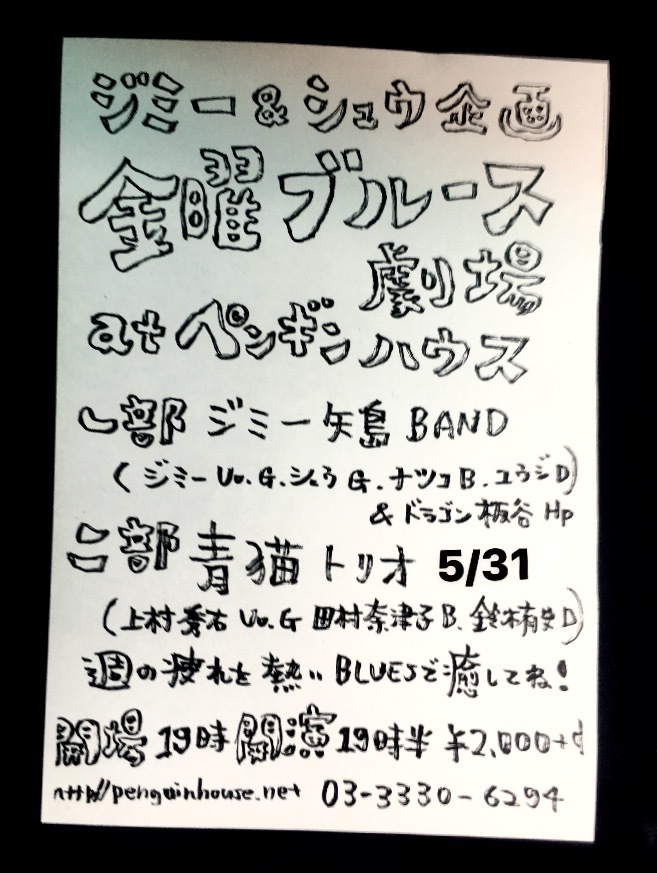 ジミー&シュウ企画
金曜ブルース
劇場
at ペンギンハウス
一部 ジミー矢島 BAND
(ジミーVo.G.シュウG.ナツコB.ユウジD)
& ドラゴン板谷 Hp
二部 青猫トリオ 5/31
(上村秀右Vo.G 田村奈津子B.鈴木有史D)
週の疲れを熱いBLUESで癒してね!
開場19時開演19時半 ¥2,000+d
http://penguinhouse.net 03-3330-6294